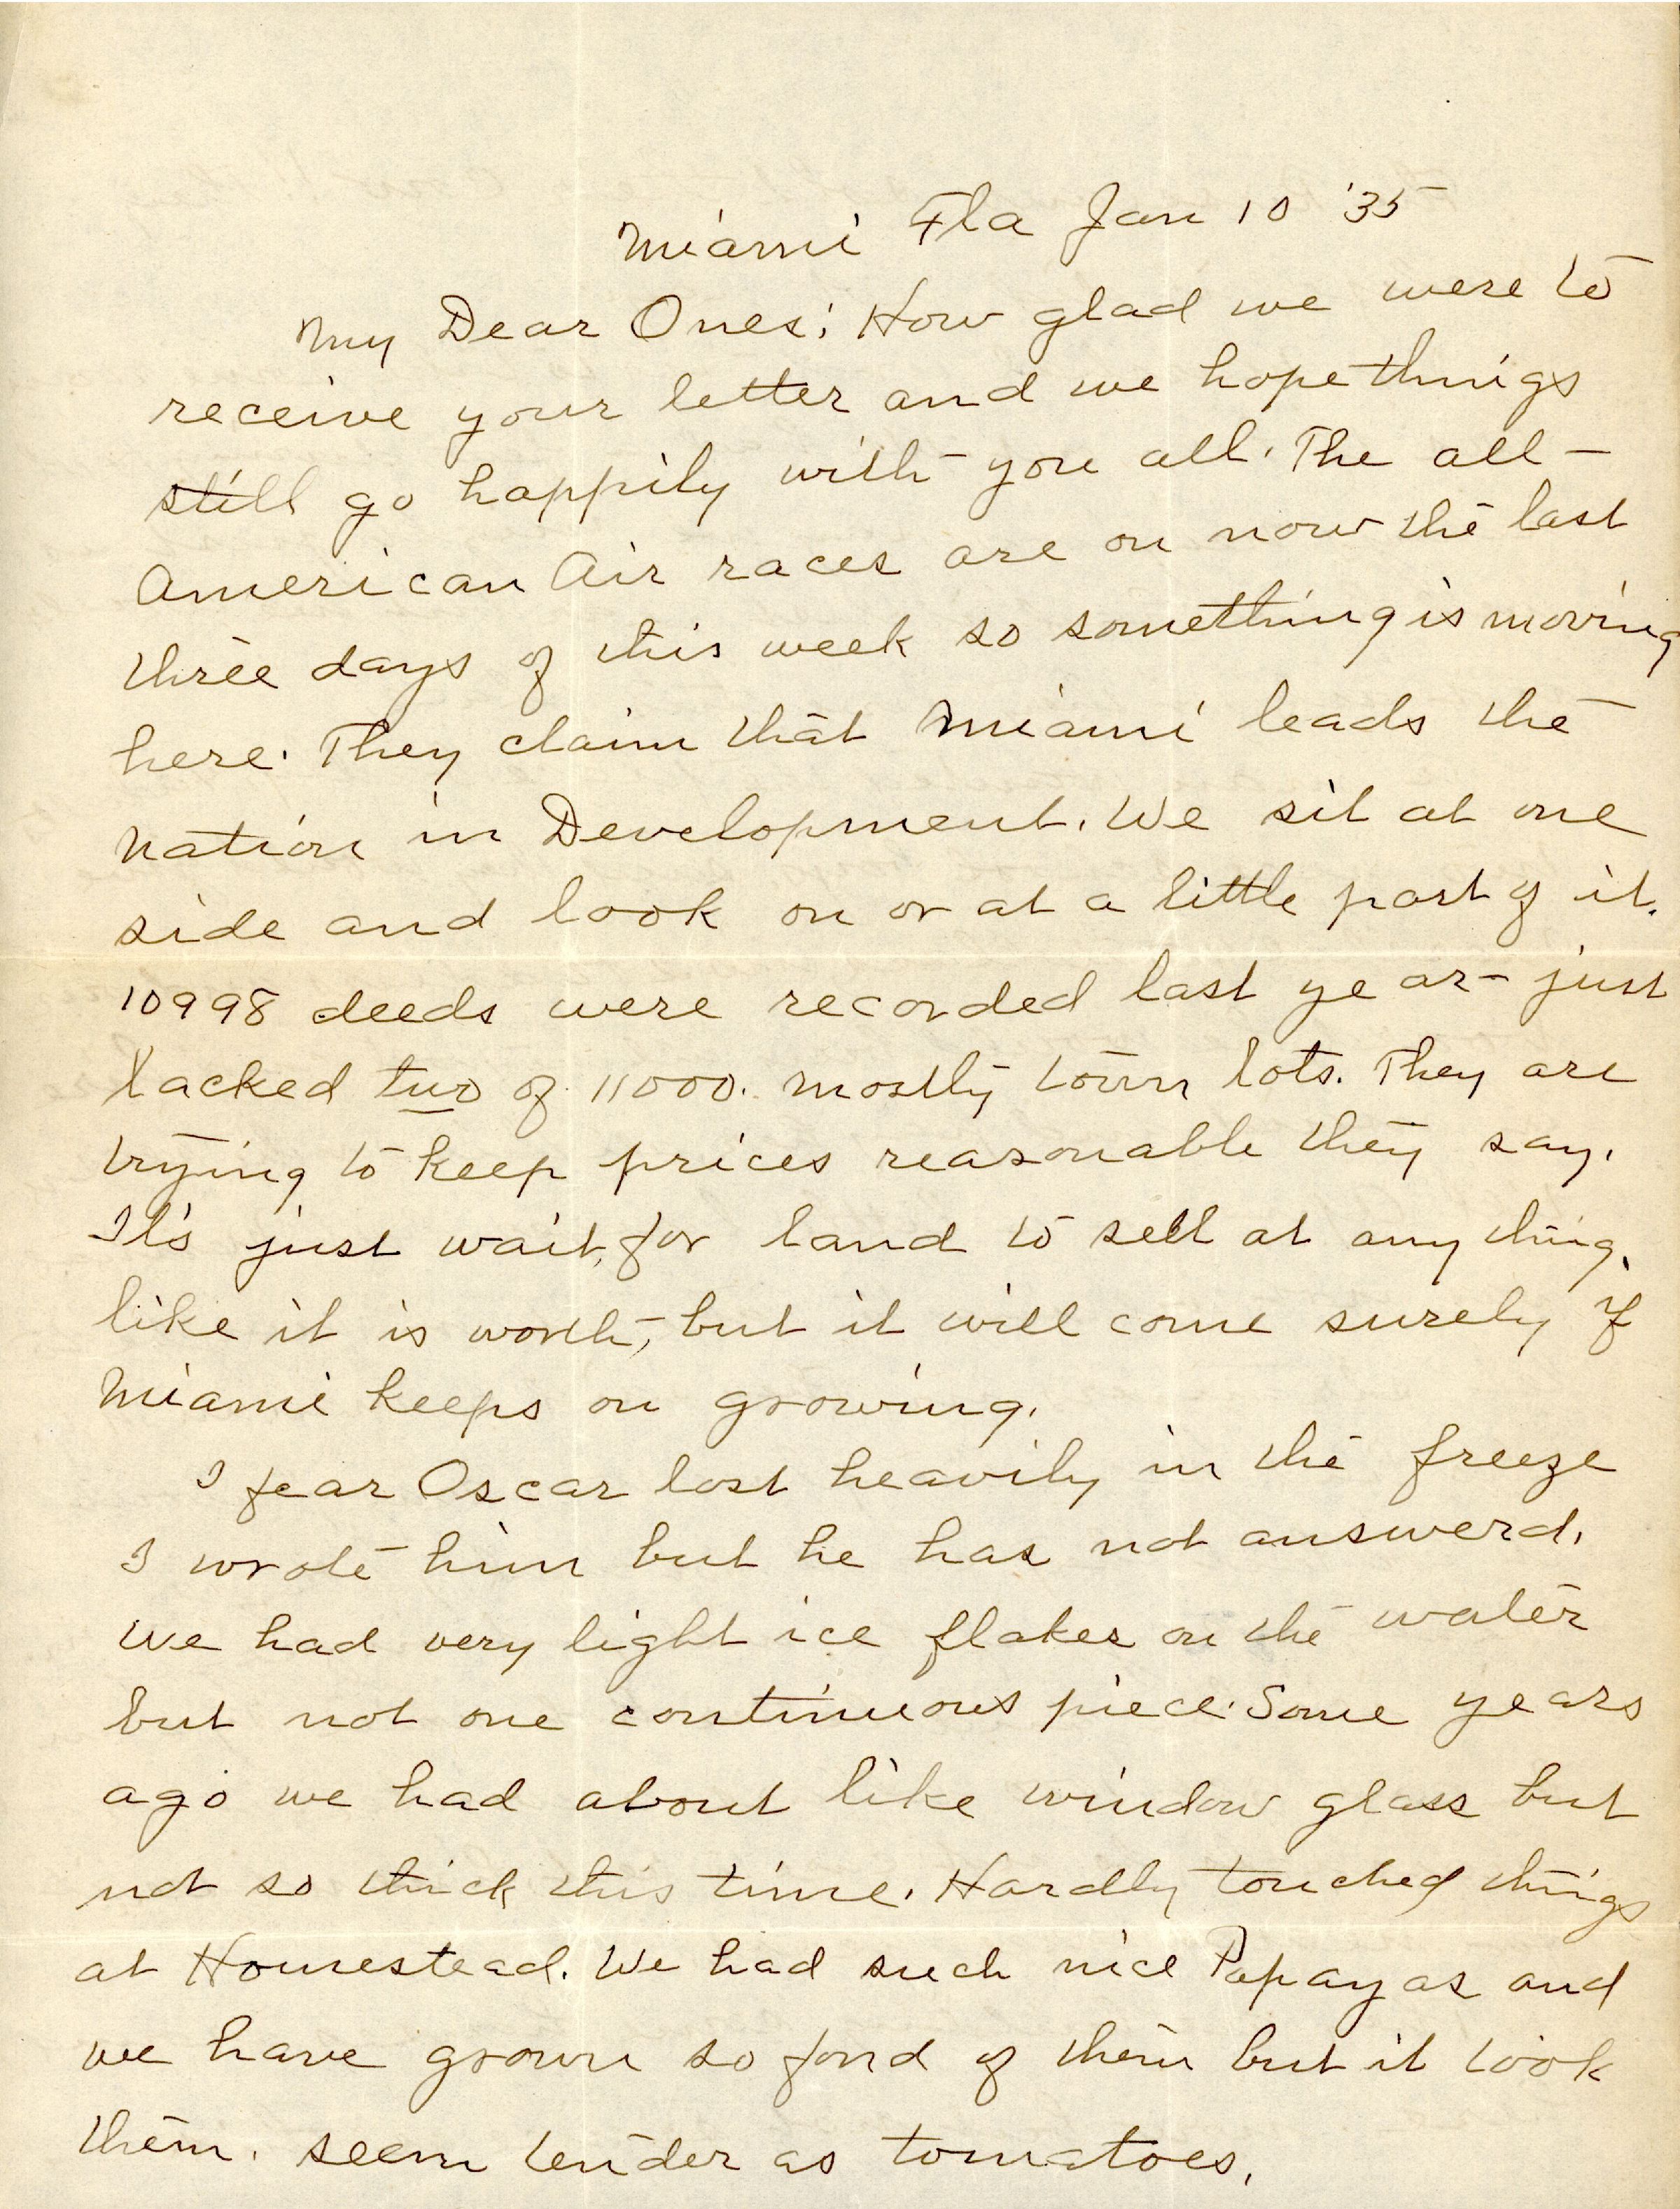 Miami Fla Jan 10 '35
My Dear Ones: How glad we were to
receive your letter and we hope things
still go happily with you all. The all-
American Air races are on now the last
three days of this week so something is moving
here. They claim that Miami leads the
nation in Development. We sit at one
side and look on or at a little part of it.
10998 deeds were recorded last year - just
lacked two of 11000. mostly town lots. They are
trying to keep prices reasonable they say.
It's just wait, for land to sell at any thing
like it is worth, but it will come surely if
Miami keeps on growing.
I fear Oscar lost heavily in the freeze
I wrote him but he has not answerd.
We had very light ice flakes on the water
but not one continuous piece. Some years
ago we had about like window glass but
not so thick this time. Hardly touched things
at Homestead. We had such nice Papayas and
we have grown so fond of them but it took
them. seem tender as tomatoes.